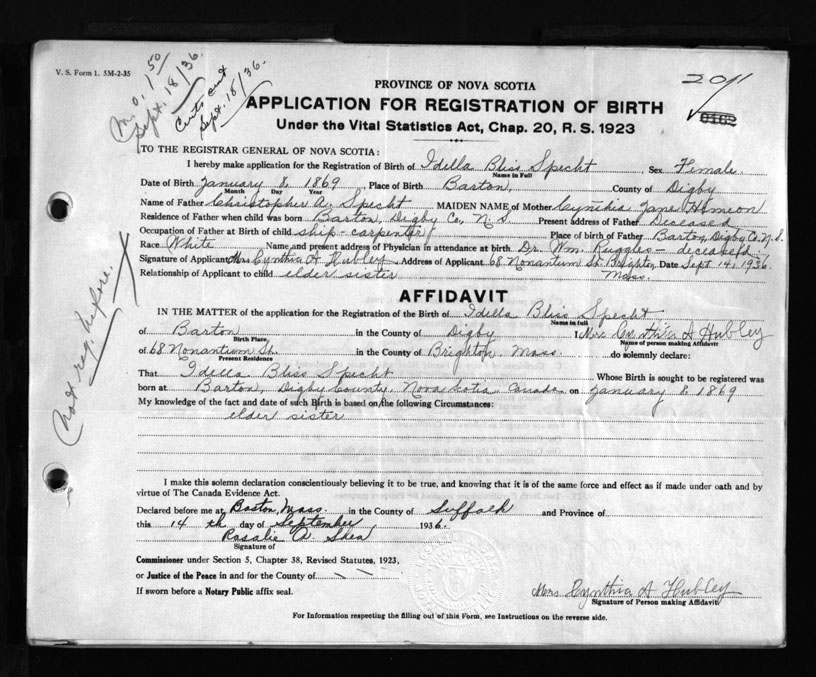 V. S. Form 1. 5M-2-35
M.O. 1.50
Sept. 18/36.
Certs sent
Sept. 18/36.
2011
PROVINCE OF NOVA SCOTIA
APPLICATION FOR REGISTRATION OF BIRTH
Under the Vital Statistics Act, Chap. 20, R. S. 1923
TO THE REGISTRAR GENERAL OF NOVA SCOTIA:
I hereby make application for the Registration of Birth of Idella Bliss Specht, Sex Female.
Name in Full
Date of Birth January 8, 1869, Place of Birth Barton, County of Digby
Month Day Year
Name of Father Christopher A. Specht MAIDEN NAME of Mother Cynthia Jane
Residence of Father when child was born Barton, Digby Co, N.S Present address of Father Deceased
Occupation of Father at Birth of child ship-carpenter Place of birth of Father Barton, Digby Co. N.S.
Race White Name and present address of Physician in attendance at birth Dr. Wm. Ruggles - deceased
Signature of Applicant Mrs Cynthia A Hubley Address of Applicant 68 Nonantum St. Brighton, Date Sept 14, 1936.
Relationship of Applicant to child elder sister Mass.
AFFIDAVIT
IN THE MATTER of the application for the Registration of the Birth of Idella Bliss Specht
Name in full
of Barton in the County of Digby I, Mrs Cynthia A Hubley
Birth Place, Name of person making Affidavit
of 68 Nonantum St. in the County of Brighton, Mass. do solemnly declare:
Present Residence
That Idella Bliss Specht Whose Birth is sought to be registered was
born at Barton, Digby County, Nova Scotia, Canada on January 8, 1869
My knowledge of the fact and date of such Birth is based on the following Circumstances:
elder sister
(not reg. before.
I make this solemn declaration conscientiously believing it to be true, and knowing that it is of the same force and effect as if made under oath and by
virtue of The Canada Evidence Act.
Declared before me at Boston, Mass. in the County of Suffolk and Province of
this 14 th day of September 1936.
Rosalie A. Shea
Signature of
Commissioner under Section 5, Chapter 38, Revised Statutes, 1923,
or Justice of the Peace in and for the County of
If sworn before a Notary Public affix seal.
Mrs Cynthia A Hubley
Signature of Person making Affidavit
For Information respecting the filling out of this Form, see Instructions on the reverse side.